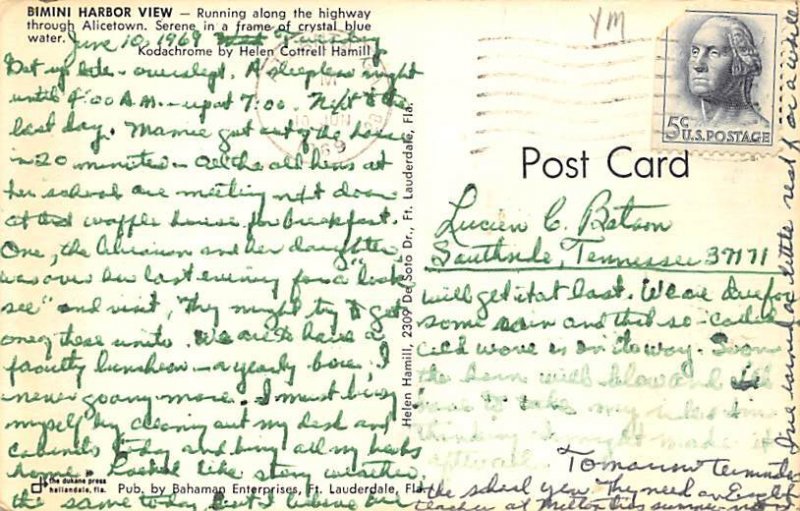 BIMINI HARBOR VIEW — Running along the highway
through Alicetown. Serene in a frame of crystal blue
water.
Kodachrome by Helen Cottrell Hamill
June 10, 1969 Tuesday
Get up late - overslept. A sleepless night
until 4:00 A.M. - up at 7:00. Next to the
last day. Mamie got out of the house
in 20 minutes - All the old hens at
her school are meeting next door
at the waffle house for breakfast.
One, the librarian and her daughter
was over here last evening for a "look
see" and visit, They might try to get
one of these units. We are to have a
faculty luncheon - a yearly bore, I
never go any more. I must busy
myself by cleaning out my desk and
cabinets today and bring all my books
home. Looked like stormy weather,
the same today but I believe we
the dukane press
hallandale, fla.
Pub. by Bahaman Enterprises, Ft. Lauderdale, Fla.
Helen Hamill, 2309 De Soto Dr., Ft. Lauderdale, Fla.
YM
JUN
1969
5c U.S. POSTAGE
Post Card
Lucien C. Batson
Southside, Tennessee 37171
will get it at last. We are due for
some rain and that so-called
cold wave is on its way. Soon
the horn will blow and
have to take my
thinking I might made it
after all. Tomorrow terminates
the school year. They need an English
teacher at
I've earned a little rest for a while